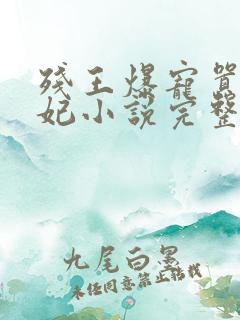 残王爆宠嚣
妃小说完整
九尾白墨
未经同意禁止转载